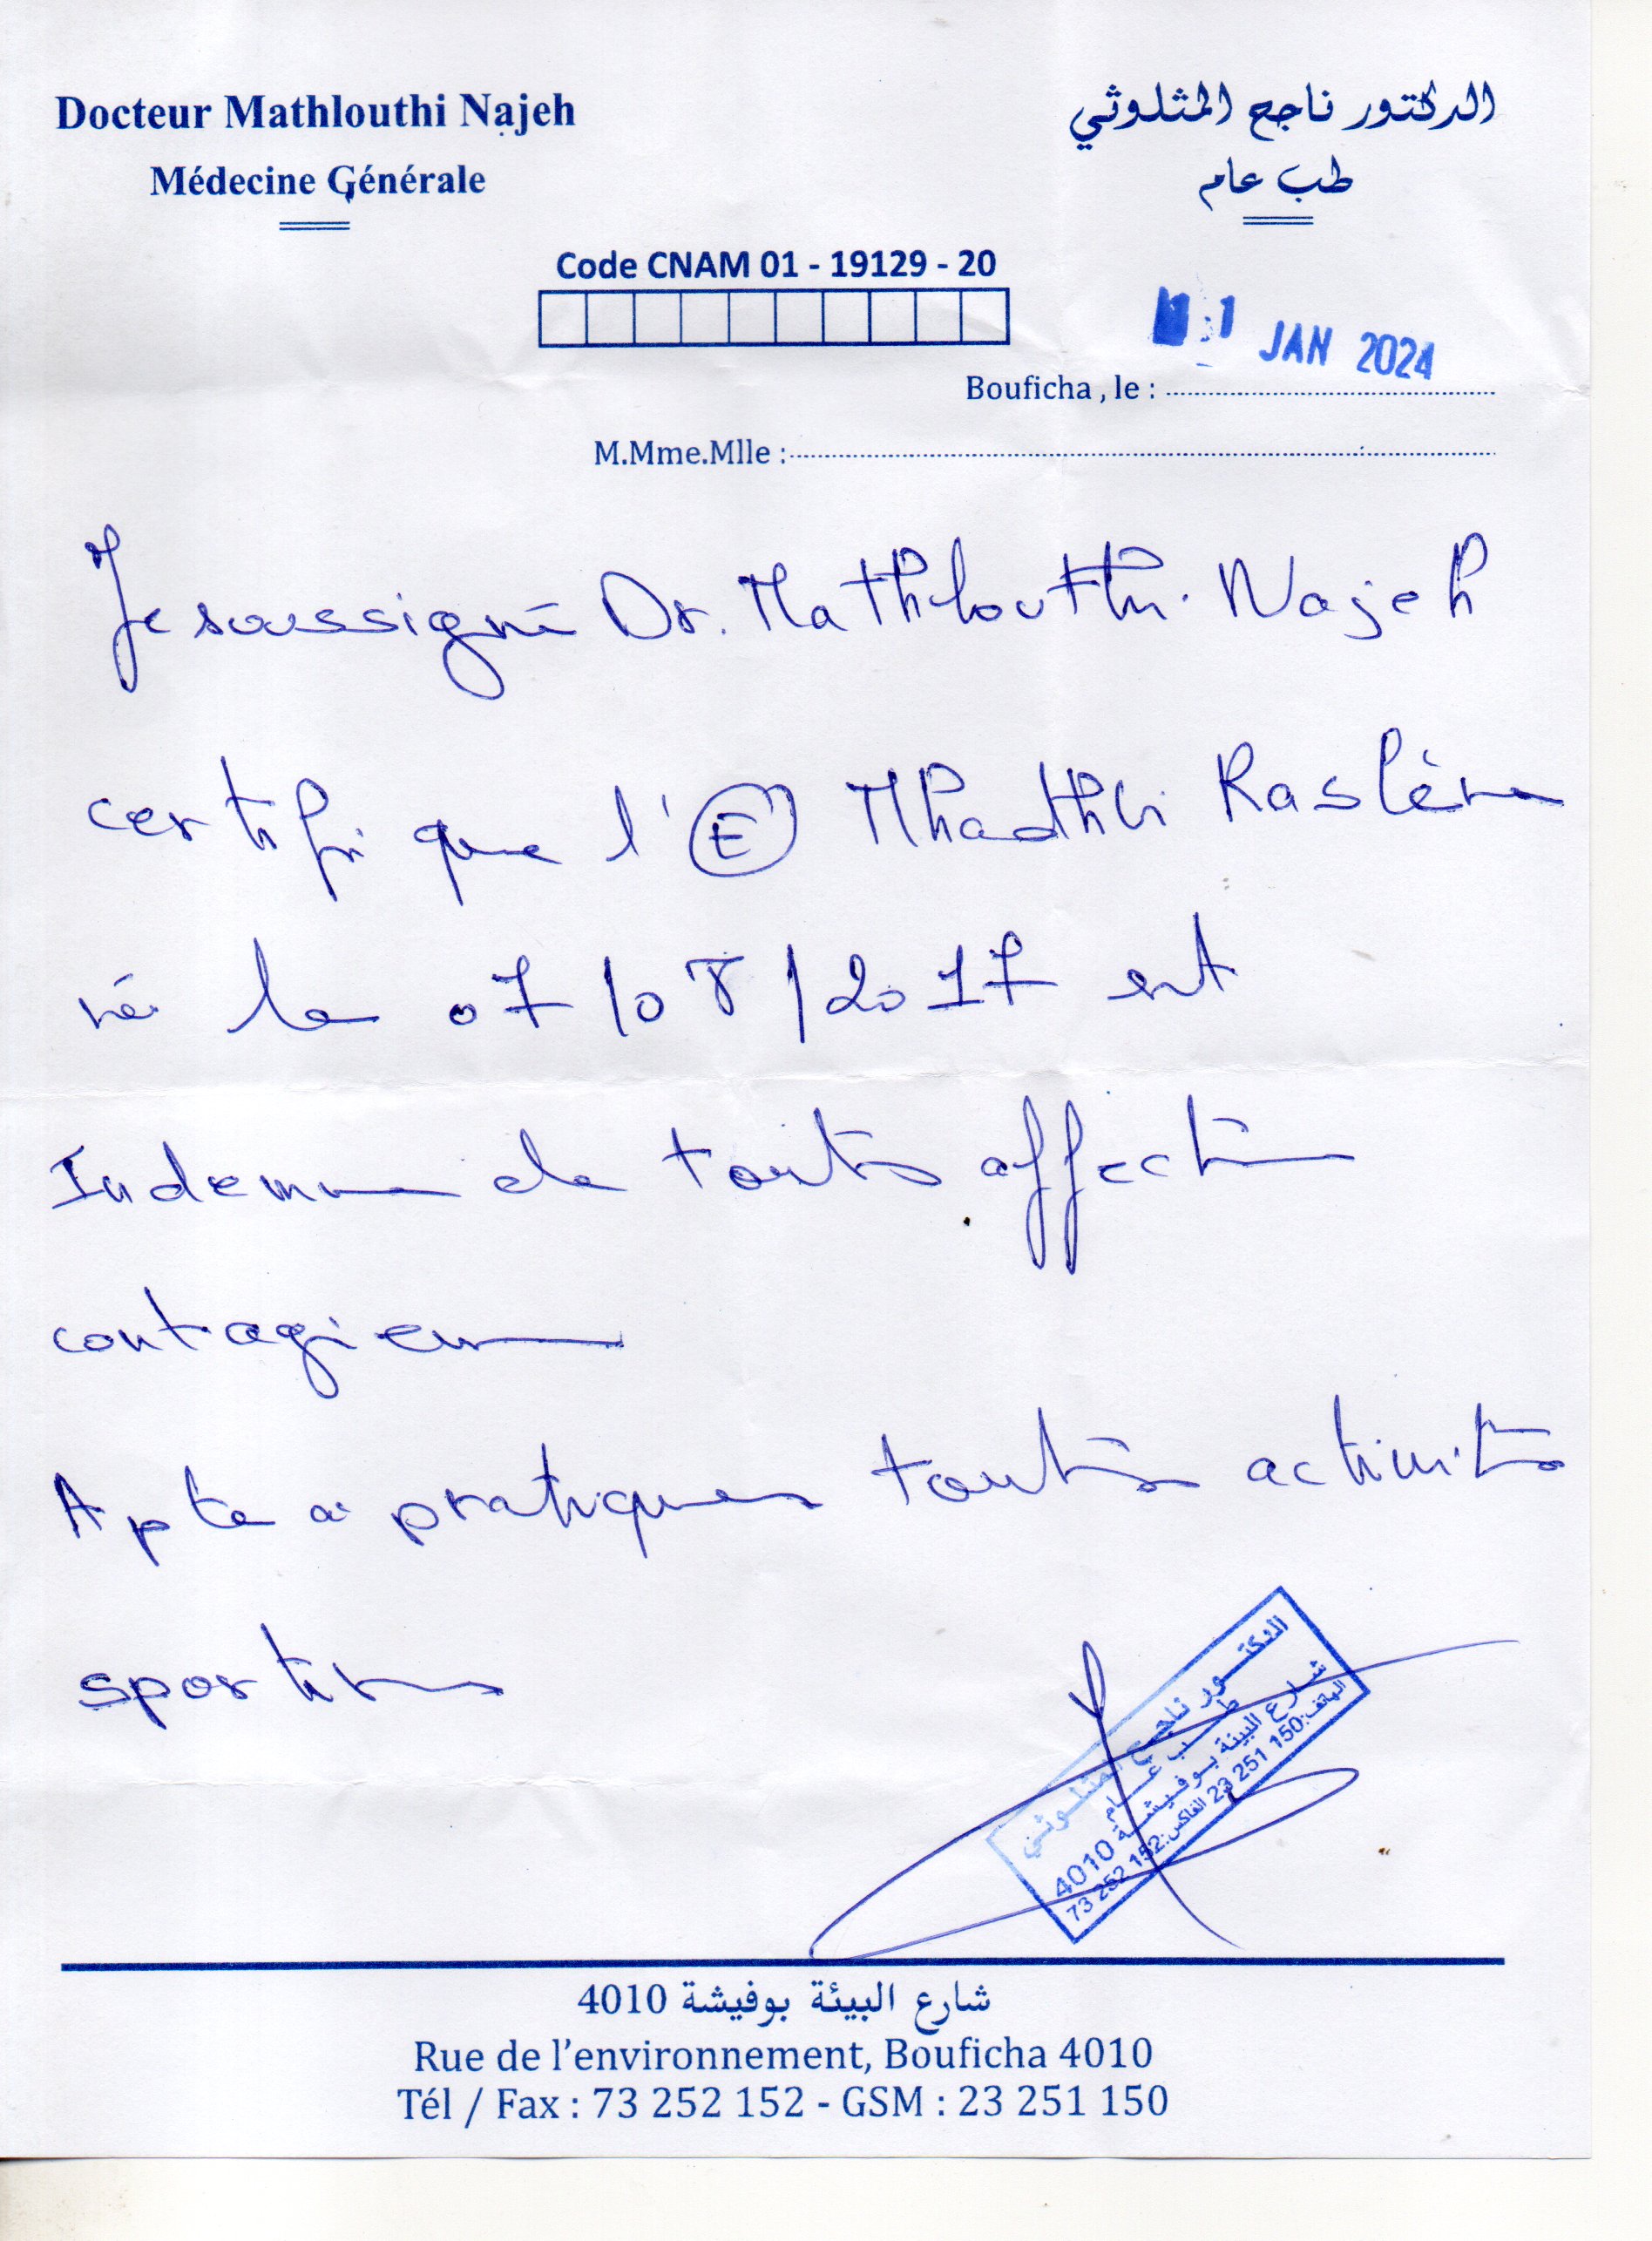 Docteur Mathlouthi Najeh
Médecine Générale
الدكتور ناجح المثلوثي
طب عام
Code CNAM 01 - 19129 - 20
1 JAN 2024
Bouficha , le :
M.Mme.Mlle :
Je soussigné Dr. Mathlouthi. Najeh
certifie que l'E Mhadhbi Raslène
né le 07/08/2017 est
Indemne de toutes affection
contagieuse
Apte à pratiquer toutes activités
sportives
الدكتور ناجح المثلوثي
طب عام
شارع البيئة بوفيشة 4010
الهاتف: 150 251 23 الفاكس: 152 252 73
شارع البيئة بوفيشة 4010
Rue de l'environnement, Bouficha 4010
Tél / Fax : 73 252 152 - GSM : 23 251 150